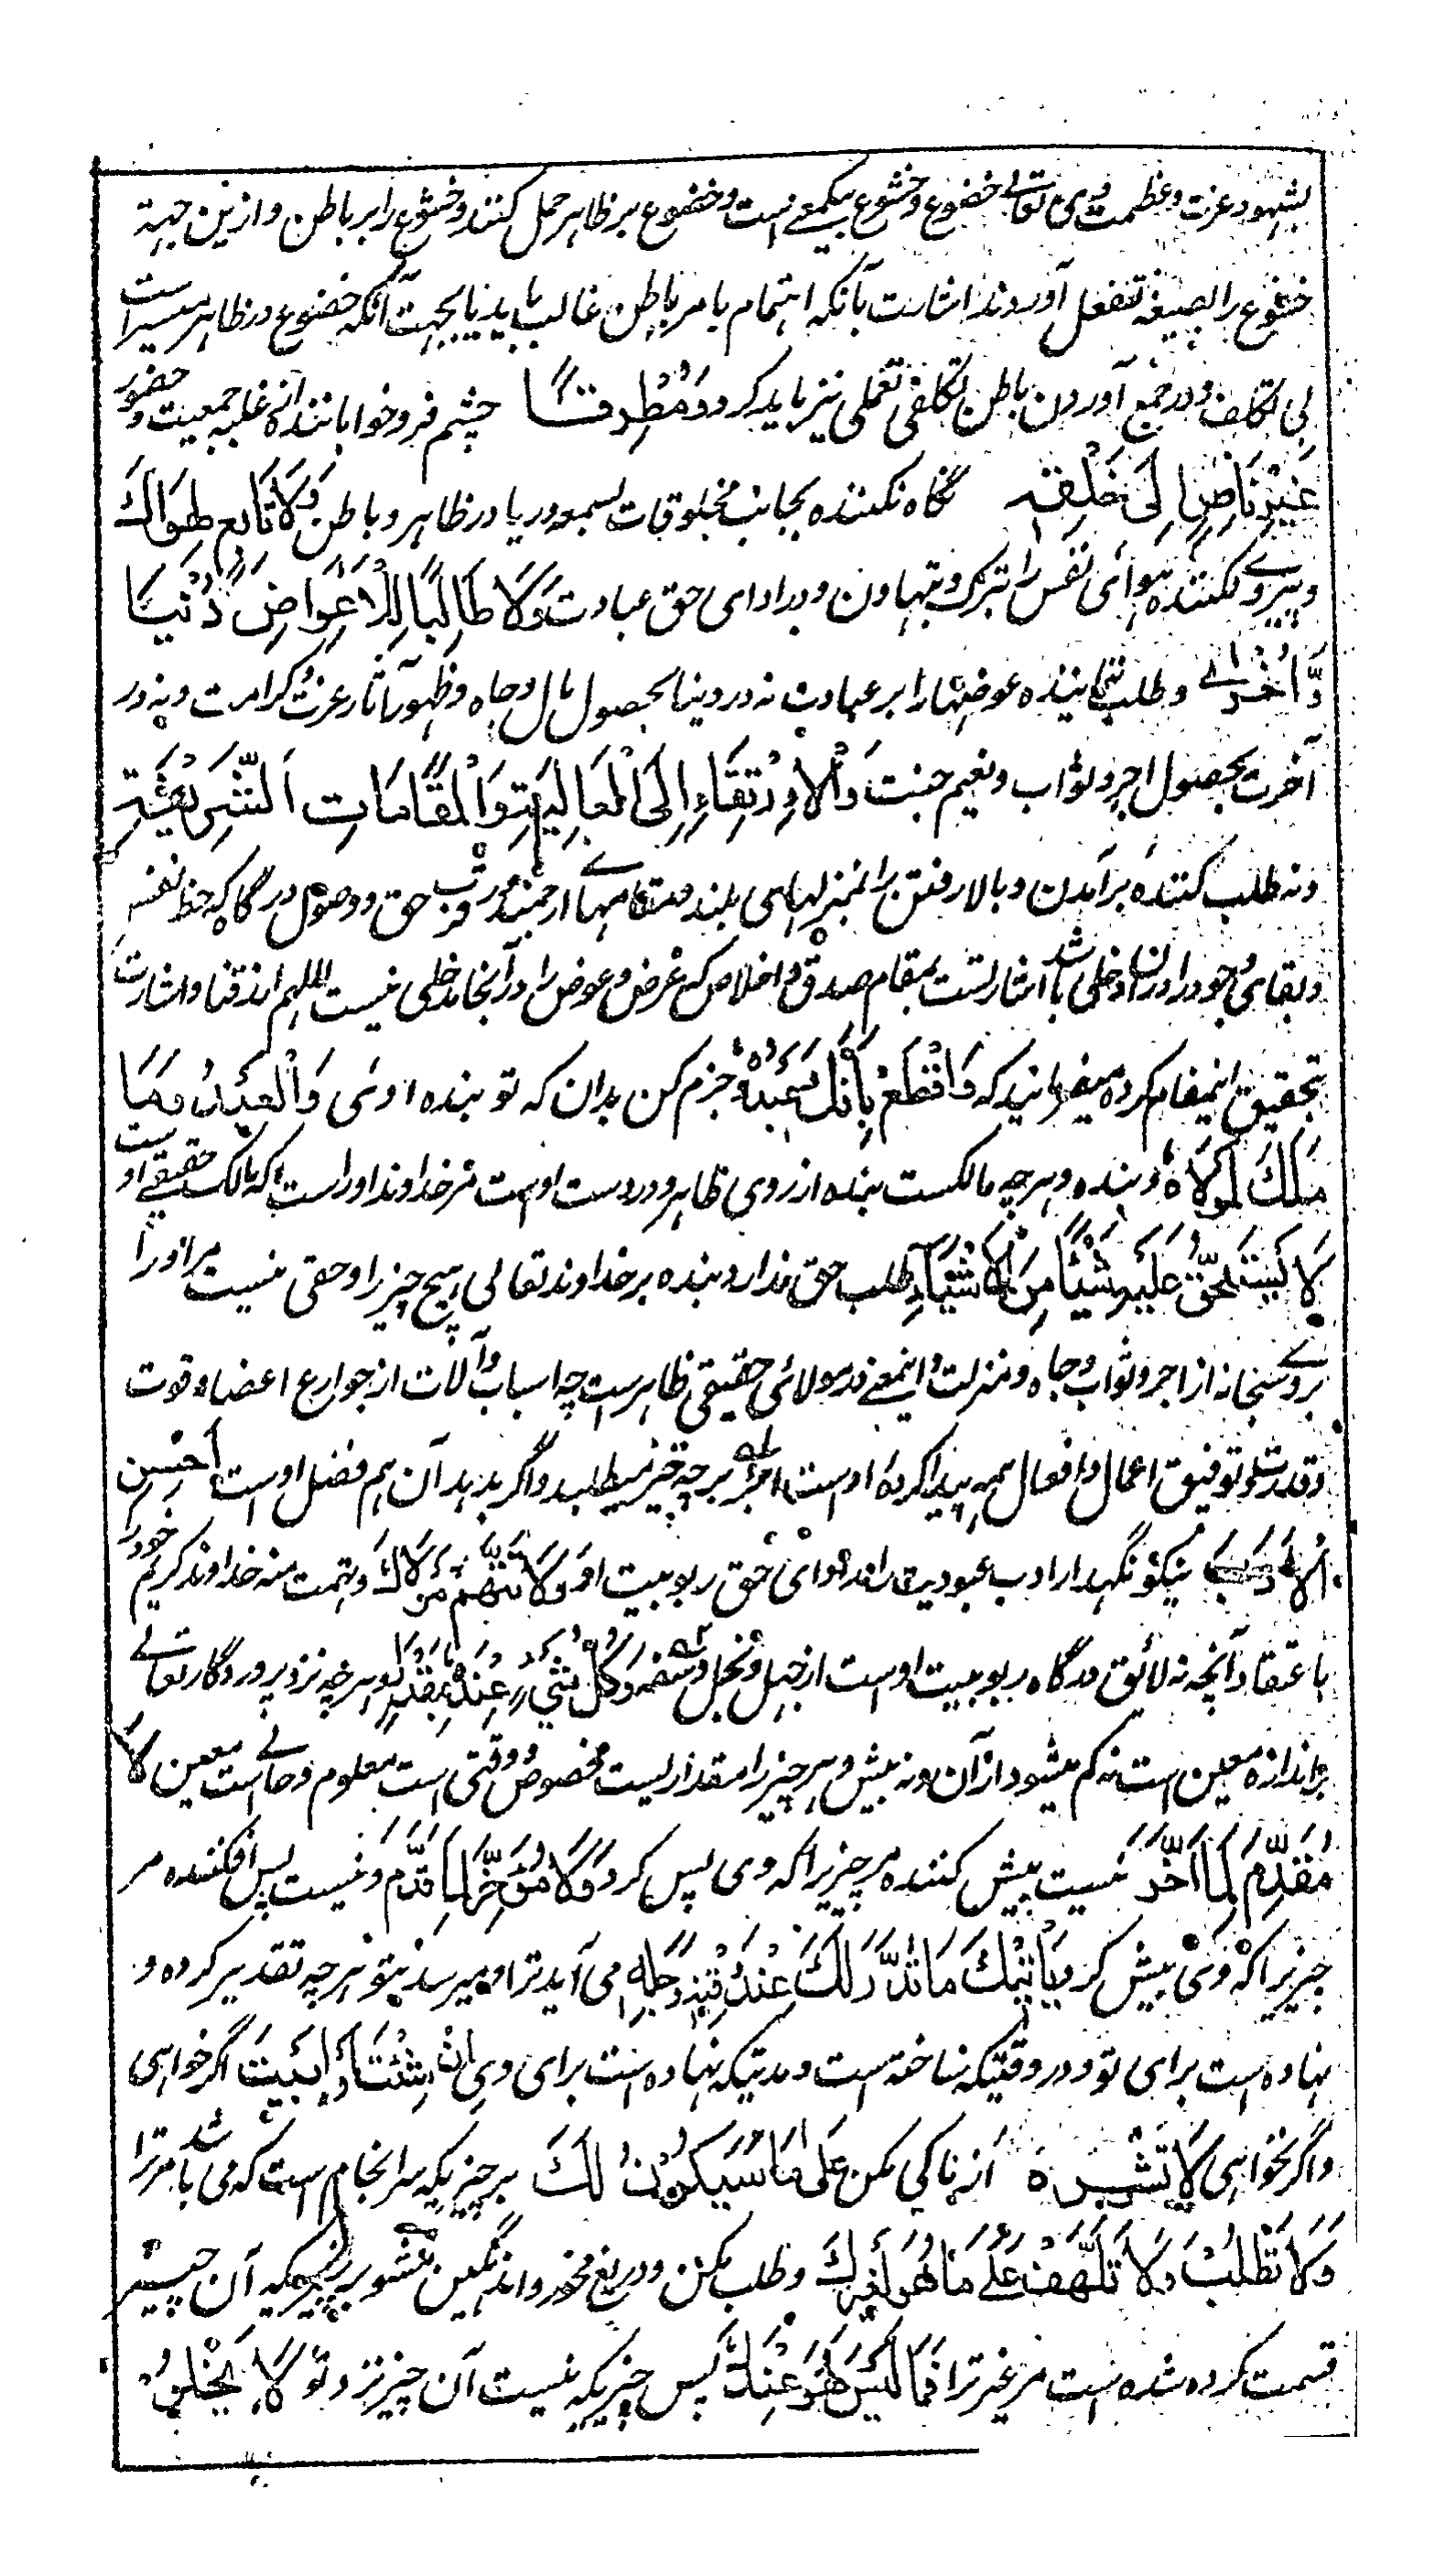 بشهود عزت و عظمت وی تعالے خضوع و خشوع بیکمعنے است و خضوع بر ظاهر حمل کنند و خشوع را بر باطن و ازین جهة
خشوع را بصیغه تفعل آوردند اشارت بآنکه اهتمام بامر باطن غالب باید یا بجهت آنکه خضوع در ظاهر میسر است
بی تکلف و در جمع آوردن باطن تکلفی تعملی نیز باید کرد وَمُطْرِقًا چشم فرو خوابانند از غلبه جمعیت و حضور
غَیْرَ نَاضِرٍ اِلٰی خَلْقِهِ نگاه نکننده بجانب مخلوقات بسمعه و ریا در ظاهر و باطن وَلَا تَابِعٍ لِهَوَاكَ
و پیروے نکننده هوای نفس را بترک و تهاون در ادای حق عبادت وَلَا طَالِبًا لِلْاَعْوَاضِ دُنْیَا
وَّاُخْرٰے و طلب نمایننده عوضها را بر عبادت نه در دنیا بحصول مال و جاه و ظهور آثار عزت و کرامت و نه در
آخرت بحصول اجر و ثواب و نعیم جنت وَالْاِرْتِقَاءِ اِلَی الْمَعَالِیَةِ وَالْمَقَامَاتِ الشَّرِیْفَةِ
و نه طلب کننده برآمدن و بالا رفتن را بمنزلهای بلند و مقامهاے ارجمند در قرب حق و وصول درگاه که حظ نفس
و بقای وجود را دران دخلی باشد اشارتست بمقام صدق و اخلاص که غرض و عوض را در آنجا مدخلی نیست اللهم ارزقنا و اشارت
بتحقیق اینمقام کرده میفرمانید که وَاقْطَعْ بِاَنَّكَ عَبْدُهٗ جزم کن بدان که تو بنده اوئی وَالْعَبْدُ وَمَا
مَلَكَ لِمَوْلَاهُ و بنده و هرچه مالکست بنده از روی ظاهر و در دست اوست مر خداوند او راست که مالک حقیقے اوست
لَا یَسْتَحِقُّ عَلَیْهِ شَیْئًا مِنَ الْاَشْیَاءِ طلب حق ندارد بنده بر خداوند تعالی هیچ چیز را و حقی نیست مر او را
بروے سبحانه از اجر و ثواب و جاه و منزلت و اینمعنے در مولائی حقیقی ظاهرست چه اسباب و آلات از جوارح اعضا و قوت
و قدرت و توفیق اعمال و افعال همه پیدا کرده اوست اجر بر چه چیز میطلبد و اگر بدهد آن هم فضل اوست اَحْسِنِ
الْاَدَبَ نیکو نگهدار ادب عبودیت را در ادای حق ربوبیت او وَلَا تَتَّهِمْ مَوْلَاكَ و تهمت منه خداوند کریم خود را
باعتقاد آنچه نه لائق درگاه ربوبیت اوست از جهل و بخل و سفه وَكُلُّ شَیْءٍ عِنْدَهٗ بِمِقْدَارٍ و هر چه نزد پروردگار تعالے
باندازه معین است نه کم میشود از آن و نه بیش و هر چیز را مقداریست مخصوص و وقتی است معلوم و حالے است معین لَا
مُقَدِّمَ لِمَا اَخَّرَ نیست پیش کننده مر چیزیرا که وی پس کرد وَلَا مُؤَخِّرَ لِمَا قَدَّمَ و نیست پس افکننده مر
چیزیرا که وی پیش کرد یَاْتِیْكَ مَا قَدَّرَ لَكَ عِنْدَ وَقْتِهٖ وَاَجَلِهٖ می آید ترا و میرسد بتو هر چه تقدیر کرده و
نهاده است برای تو و در وقتیکه ساخته است و مدتیکه نهاده است برای وی اِنْ شِئْتَ اَوْ اَبَیْتَ اگر خواهی
و اگر نخواهی لَا تَشْرَهْ آزناکی مکن عَلٰی مَا سَیَكُوْنُ لَكَ بر چیزیکه سرانجام است که می باشد مر ترا
وَلَا تَطْلُبْ وَلَا تَلَهَّفْ عَلٰے مَا هُوَ لِغَیْرِكَ و طلب مکن و دریغ مخور و اندوهگین مشو بر چیزیکه آن چیز
قسمت کرده شده است مر غیر ترا فَمَا لَیْسَ هُوَ عِنْدَكَ پس چیزیکه نیست آن چیز نزد تو لَا یَخْلُوْ